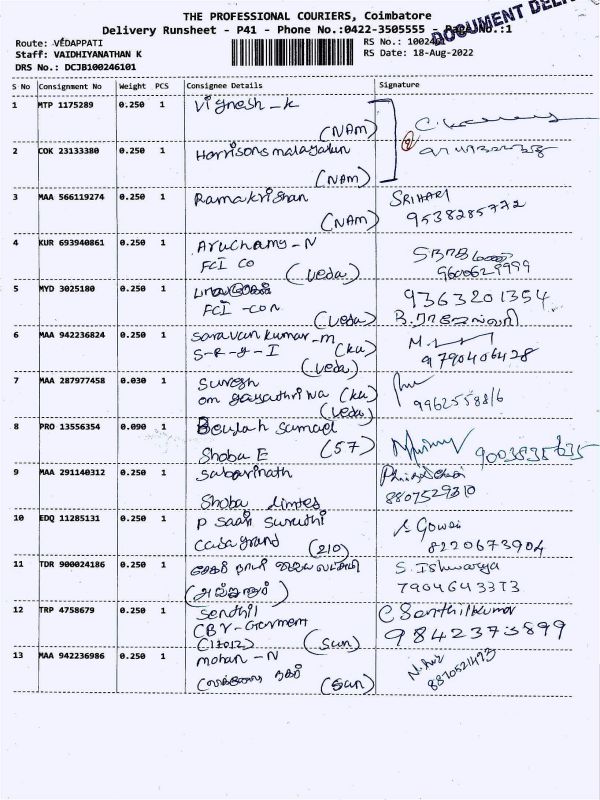 THE PROFESSIONAL COURIERS, Coimbatore
Delivery Runsheet - P41 - Phone No.:0422-3505555 - Page No.:1
DOCUMENT
Route: VEDAPPATI
RS No.: 1002461
Staff: VAIDHIYANATHAN K
RS Date: 18-Aug-2022
DRS No.: DCJB100246101
S No Consignment No Weight PCS Consignee Details Signature
1 MTP 1175289 0.250 1 Vignesh - K
(NAM)
2 COK 23133380 0.250 1 Harrisons malayalam
(NAM)
3 MAA 566119274 0.250 1 Ramakrishan SRIHARI
(NAM) 9538285772
4 KUR 693940861 0.250 1 Aruchamy - N
FCI CO (veda) 9600629999
5 MYD 3025180 0.250 1 9363201354
FCI - CON (veda) B.
6 MAA 942236824 0.250 1 Saravan kumar - m
S - R - J - I (ku) 9790406428
(veda)
7 MAA 287977458 0.030 1 Suresh
om gayathri (ku) 996255886
(veda)
8 PRO 13556354 0.090 1 Beulah Samael
Shoba E (57) 9003535635
9 MAA 291140312 0.250 1 Sabarinath
Shoba Limted 8807529310
10 EDQ 11285131 0.250 1 P Saai Suruthi S Gowri
Casagrand (210) 8220673904
11 TDR 900024186 0.250 1 S. Ishwarya
7904643373
12 TRP 4758679 0.250 1 Sendhil C Senthilkumar
CBY - Garment 9842373899
(17012) (Sun)
13 MAA 942236986 0.250 1 mohan - N
நகர் (Sun) 8870521493